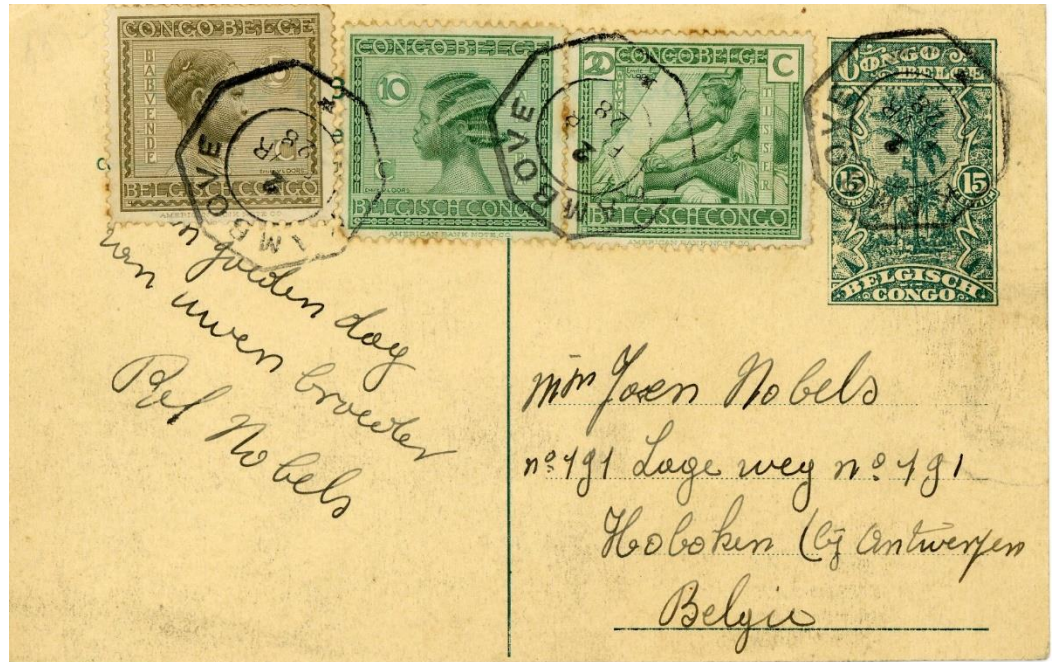 CONGO BELGE
BABUENDE
BELGISCH CONGO
AMERICAN BANK NOTE CO.
CONGO BELGE
10
C
BELGISCH CONGO
AMERICAN BANK NOTE CO.
CONGO BELGE
C
BELGISCH CONGO
AMERICAN BANK NOTE CO.
CONGO
BELGE
15
15
BELGISCH
CONGO
goeden dag
van uwen broeder
Nobels
Nobels
nº 191 Lage weg nº 191
Hoboken (bij Antwerpen
Belgie